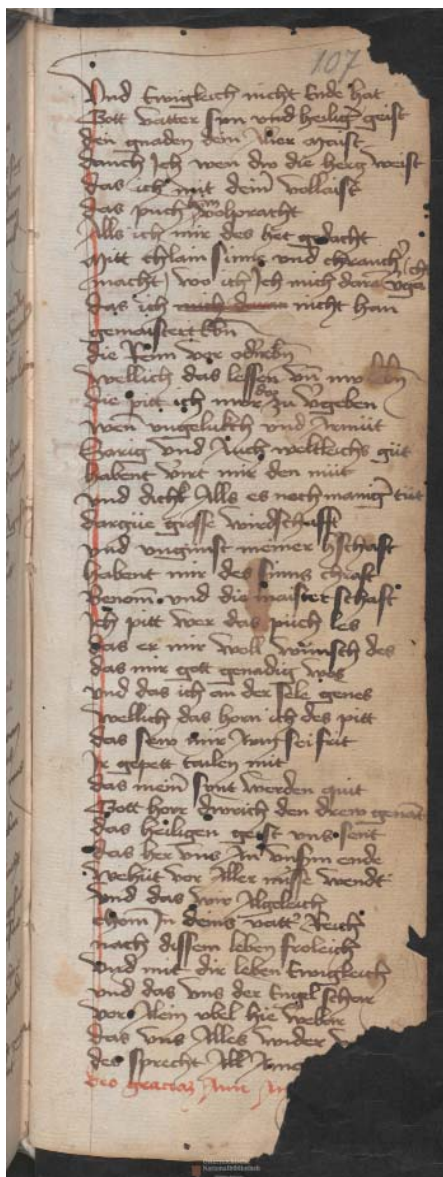 107
Vnd Ewigleich nicht Ende hat
Gott vatter sun vnd heilig geist
den gnaden dein
danch Ich wen dw die herz weist
das ich mit dein vollaist
das puech hon volpracht
Alls ich mir des het gedacht
Mitt chlain sinn und chranch
macht wo ich Ich mich daran
das ich nicht han
gemaistert
die Reim vor
wellich das lessen vnd
die pitt ich mir das zu vergeben
wen vngelukch vnd Armüt
Sorig vnd Auch weltleichs güt
habent mir den müt
vnd dickh Alls es noch manig tüt
darzue grosse wirdschafft
vnd vngunst meiner hschaft
habent mir des sinns chraft
Benom vnd die maisterschaft
Ich pitt wer das püch les
das er mir woll wünsch des
das mir gott genadig wes
vnd das ich an der sele genes
wellich das horn ich des pitt
das sew mir Seifrit
Ir gepett tailen mit
das mein sunt werden quit
Gott herr durich den drew genant
das heiligen geist vns sent
das her vns An vnserm ende
Wehüt vor Aller misse wendt
vnd das wir Algeleich
chom In deins vatter Reich
nach dissem leben froleich
vnd mit dir leben Ewigleich
vnd das vns der Engel schar
vor Alem vbel hie bewar
das vns Alles wider
des sprecht All Ame
Deo gracias